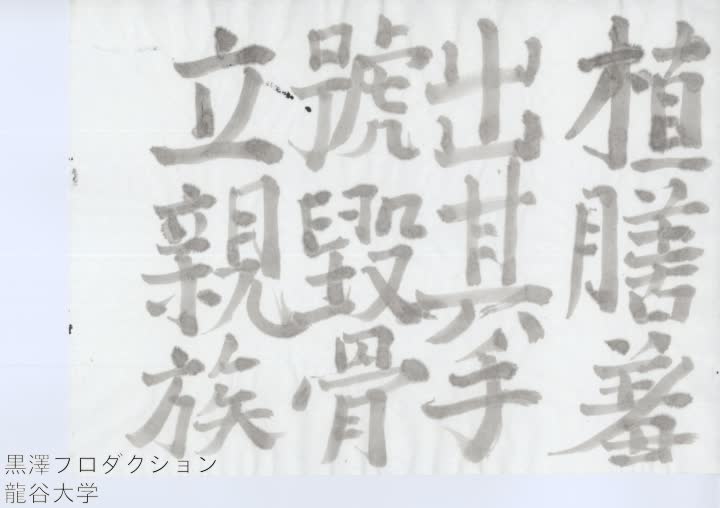 植膳羞
出其手
號毀骨
立親族
黒澤フロダクション
龍谷大学